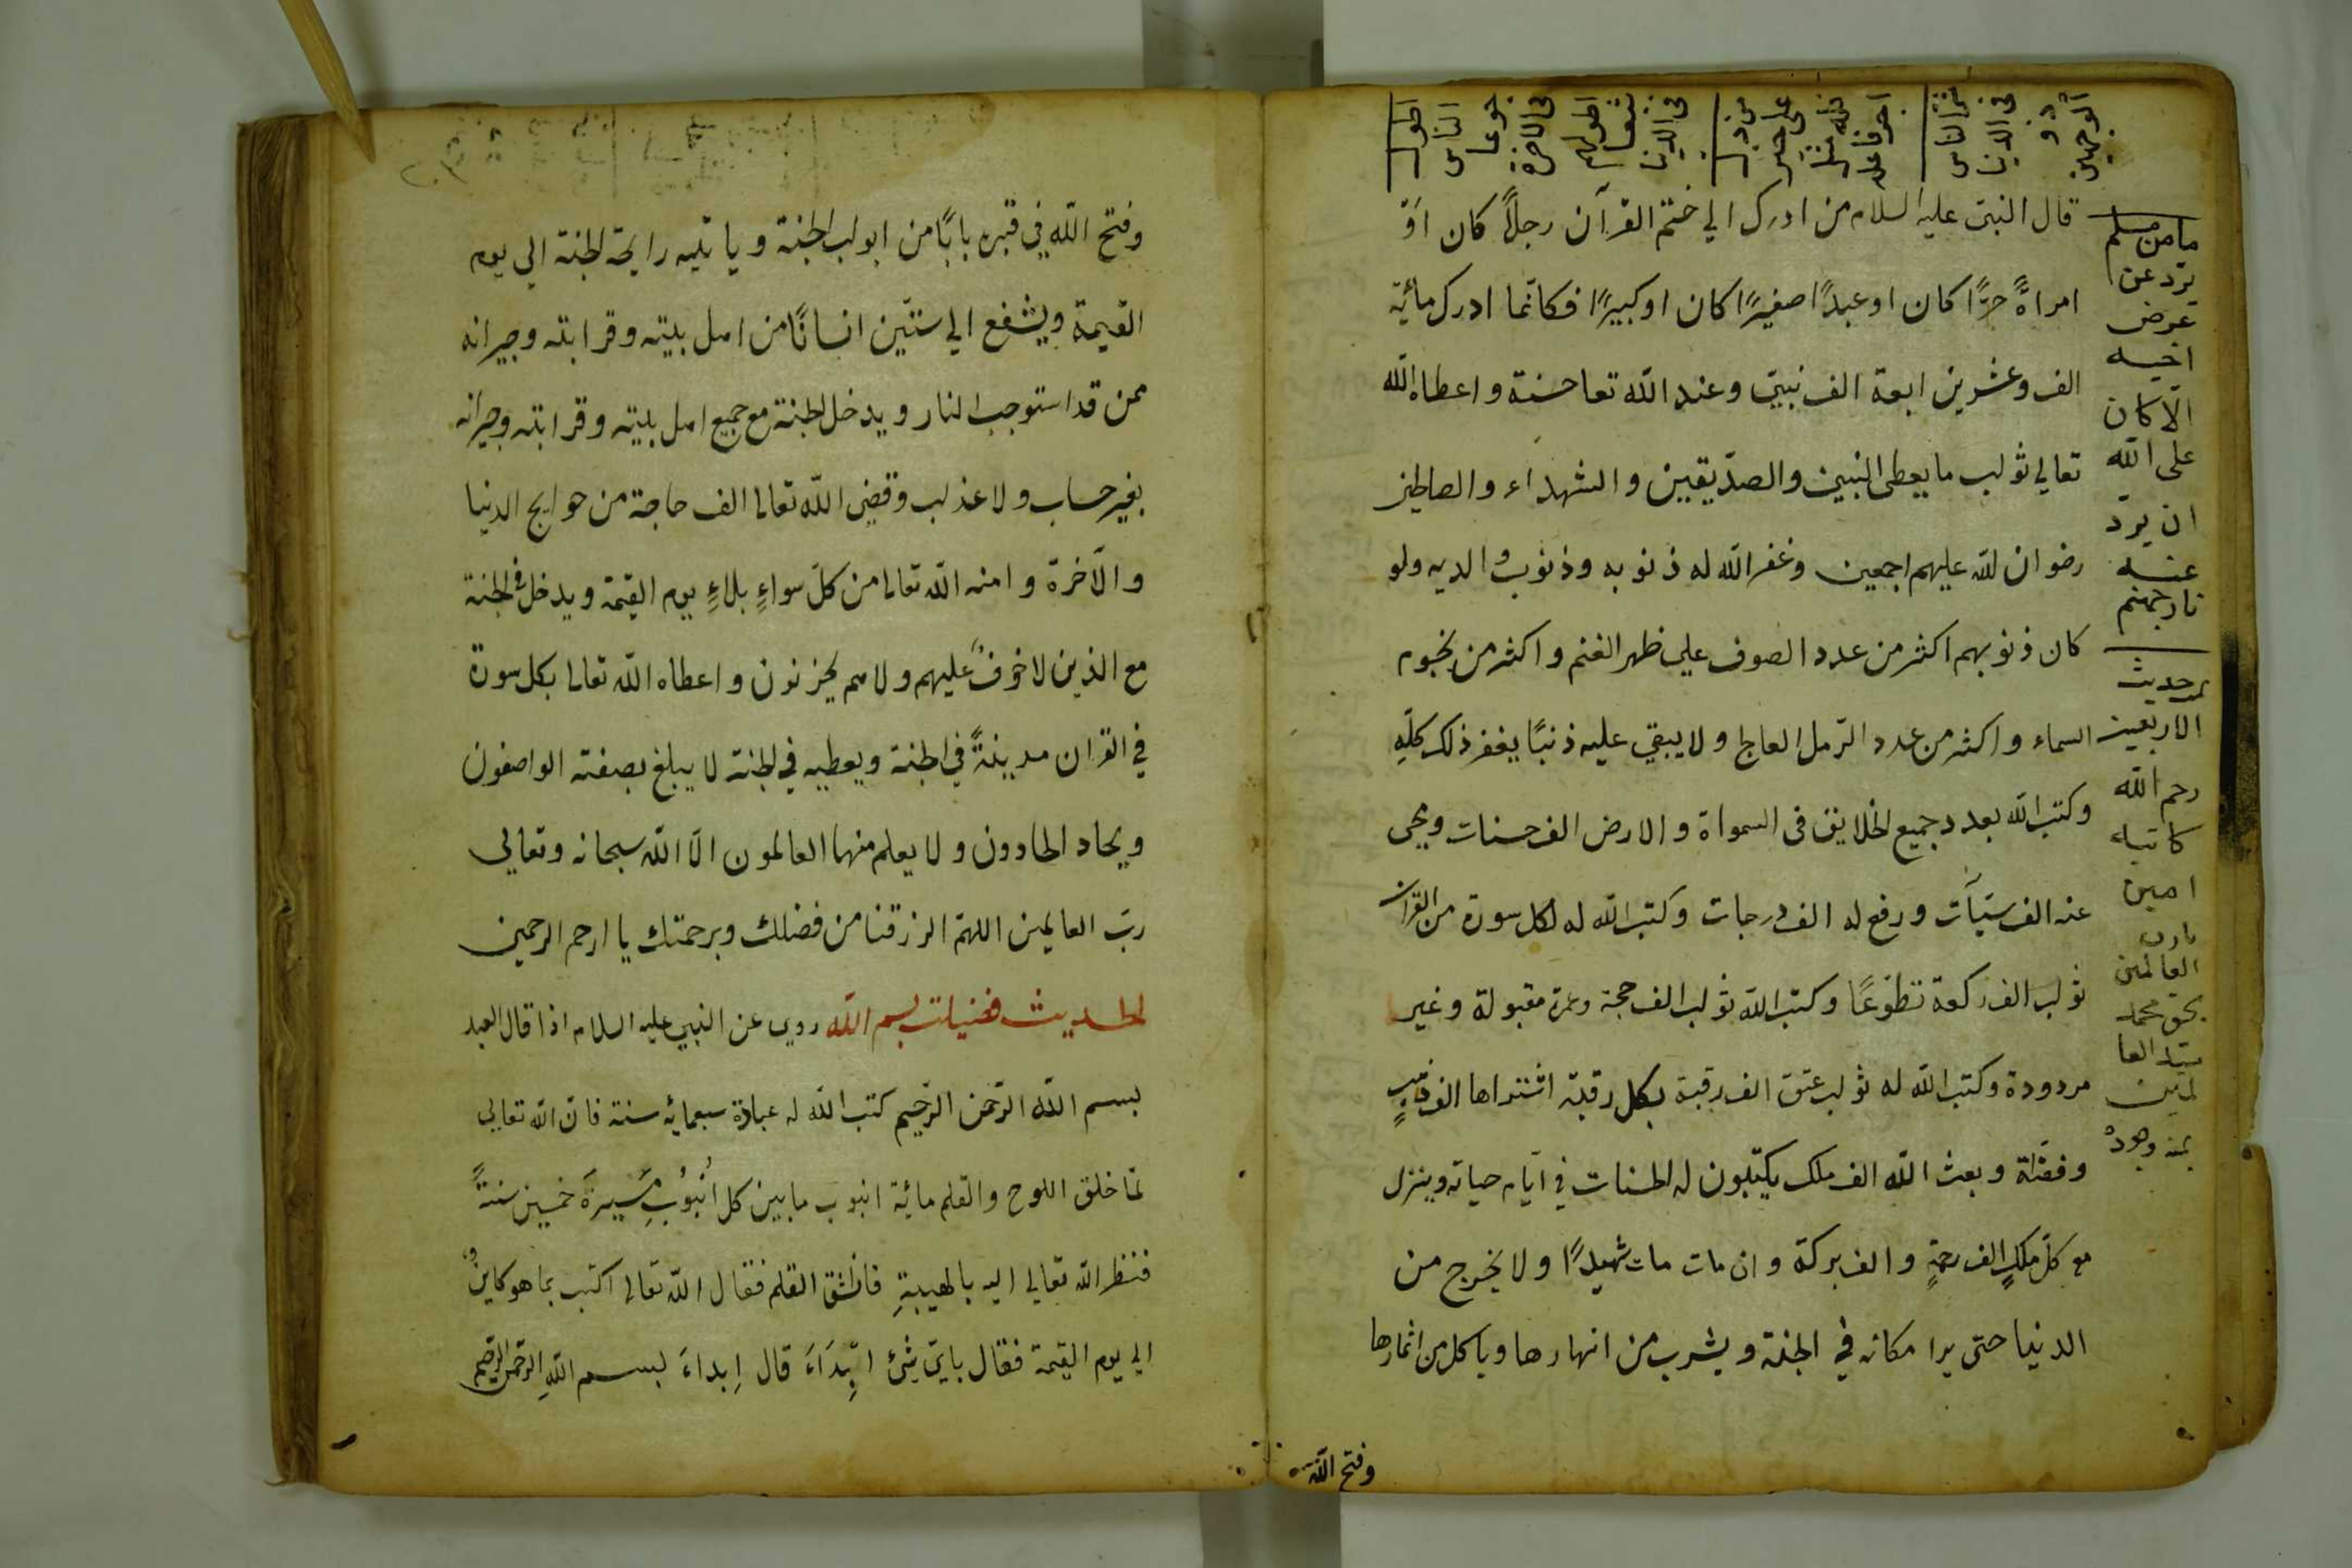 قال النبيّ عليه السلام من ادرك الي ختم القرآن رجلاً كان اَوْ
امراةً حرًّا كان او عبدًا صغيرًا كان او كبيرًا فكانّما ادرك مائية
الف وعشرين ابعة الف نبيّ وعند الله تعا حسنة واعطاه الله
تعالي ثولب ما يعطى النبين والصدّيقين والشهداء والصالحين
رضوان لله عليهم اجمعين وغفر الله له ذنوبه وذنوب والديه ولو
كان ذنوبهم اكثر من عدد الصوف علي ظهر الغنم واكثر من نجوم
السماء واكثر من عدد الرّمل العاجل ولا يبقي عليه ذنبًا يغفر ذلك كلّهِ
وكتب الله بعدد جميع الخلايق فى السمواة والارض الف حسنات ويمحى
عنه الف سيّآت ورفع له الف درجات وكتب الله له لكل سورة من القرآن
ثولب الف ركعة تطوّعًا وكتب الله ثولب الف حجة وعمرة مقبولة وغير
مردودة وكتب الله له ثولب عتق الف رقبة بكل رقبة اشتراها الف
وفضّة وبعث الله الف ملك يكتبون له الحسنات في ايّام حياته وينزل
مع كلّ ملكٍ الف رحمةٍ والف بركة وان مات مات شهيدًا ولا يخرج من
الدنيا حتى يرا مكانه في الجنة ويشرب من انهارها وياكل من اثمارها
وفتح الله
اطول
الناس
جوعا
فى الاخرة
اطولهم
شبعا
فى الدنيا
شرّ الناس
فى الدنيا
ذو
الوجهين
ما من مسلم
يردّ عن
عرض
اخيه
الّا كان
على الله
ان يردّ
عنه
نار جهنم
تمت حديث
الاربعين
رحم الله
كاتبه
امين
يا رب
العالمين
بحق محمد
سيّد العا
لمين
بمنه وجوده
وفتح الله في قبره بابًا من ابولب الجنة وياتيه رايحة الجنة الي يوم
القيمة ويشفع الي ستّين انسانًا من اهل بيته وقرابته وجيرانه
ممن قد استوجب النار ويدخل الجنة مع جميع اهل بيته وقرابته وجيرانه
بغير حساب ولا عذلب وقضي الله تعالى الف حاجة من حوايج الدنيا
والآخرة وامنه الله تعالى من كلّ سواءٍ بلاءٍ يوم القيمة ويدخل في الجنة
مع الذين لا خوفٌ عليهم ولا هم يحزنون واعطاه الله تعالى بكل سورة
في القران مدينةً في الجنة ويعطيه في الجنة لا يبلغ بصفته الواصفون
ويحاد الحادون ولا يعلم منهما العالمون الّا الله سبحانه وتعالي
ربّ العالمين اللهمّ الرزقنا من فضلك وبرحمتك يا ارحم الرحمين
الحديث فضيلت بسم الله روي عن النبي عليه السلام اذا قال العبد
بسم الله الرّحمن الرّحيم كتب الله له عبادة سبعمائه سنة فانّ الله تعالي
لمّا خلق اللوح والقلم مائية انبوب ما بين كل اُنْبُوُبٍ مَسِيرَةَ خمسين سنةً
فنظر الله تعالي اليه بالهيبةِ فانشق القلم فقال الله تعالى اكتب بما هو كاينٌ
الي يوم القيمة فقال بايّ شئ ابْتِدَاءَ قال اِبداءَ بسم اللهِ الرّحمن الرّحيم